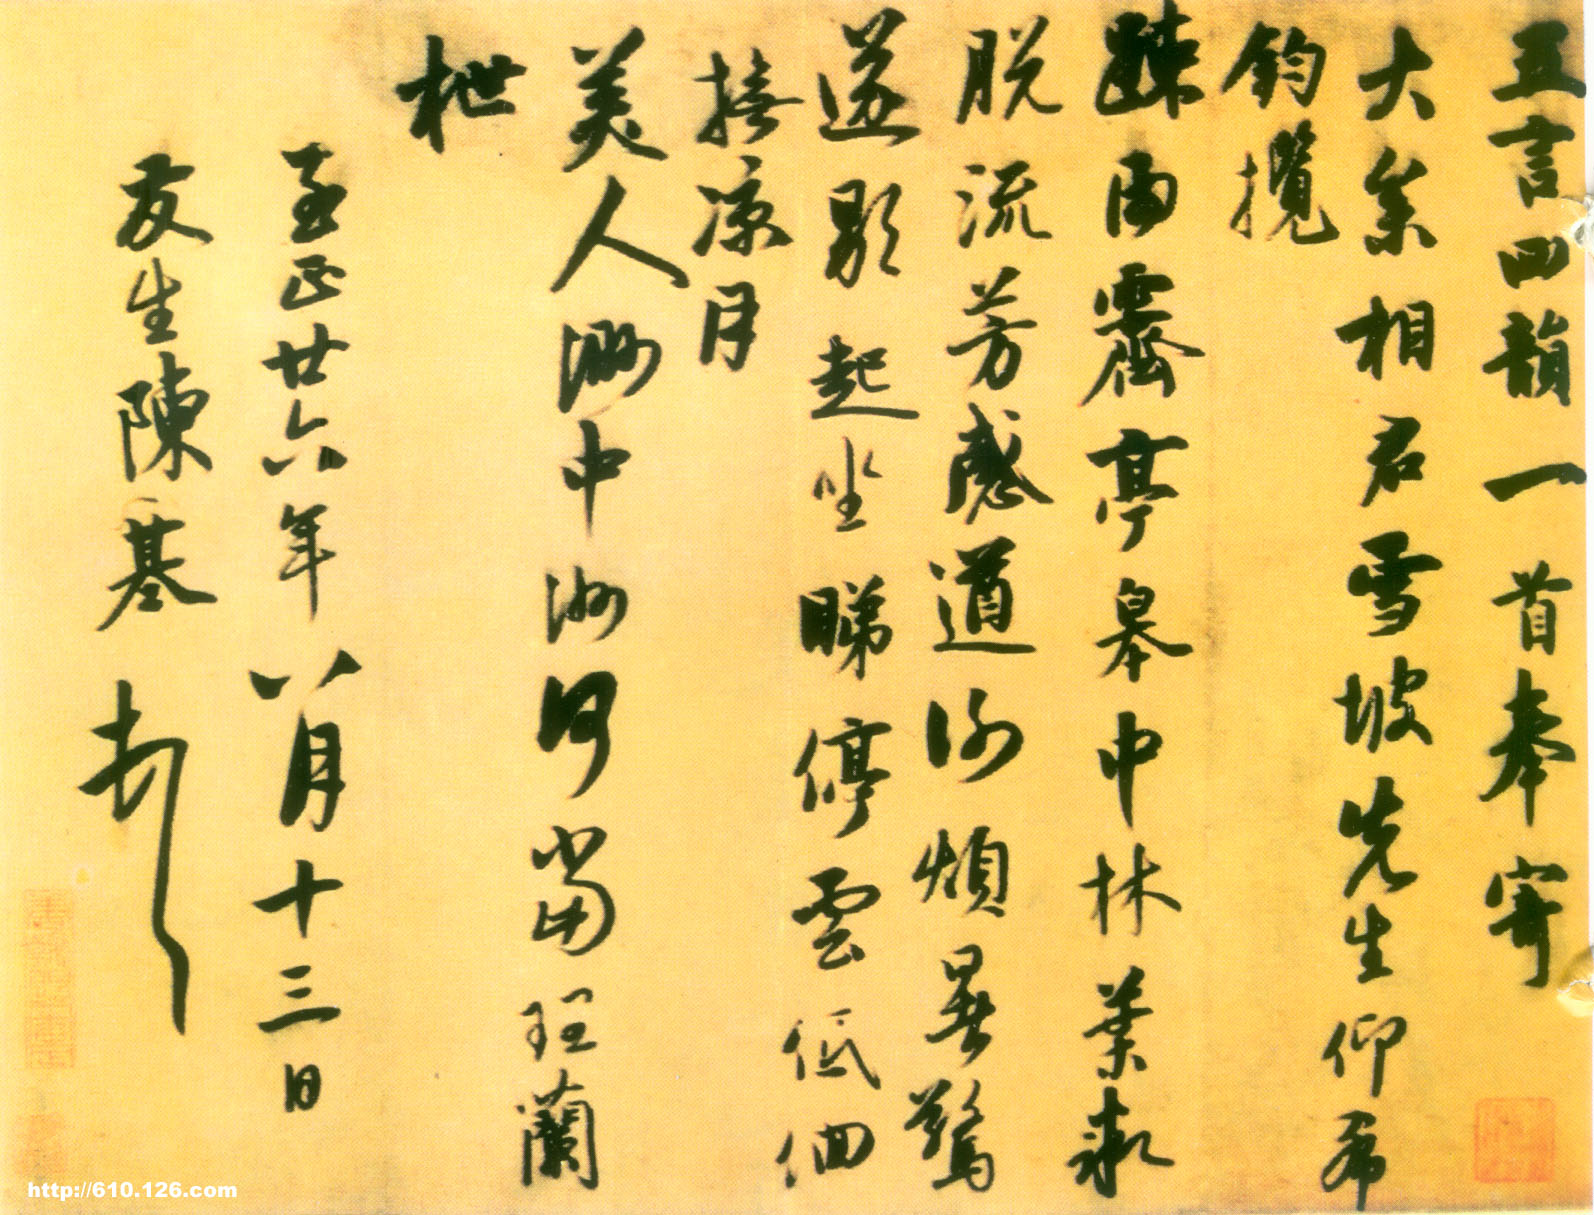 五言四韻一首奉寄
大參相君雪坡先生仰希
鈞攬
疎雨霽亭皋中林葉未
脱流芳感道例煩暑驚
遂歇起坐睇停雲低佪
撫凉月
美人渺中洲何當理蘭
枻
至正廿六年八月十三日
友生陳基
http://610.126.com